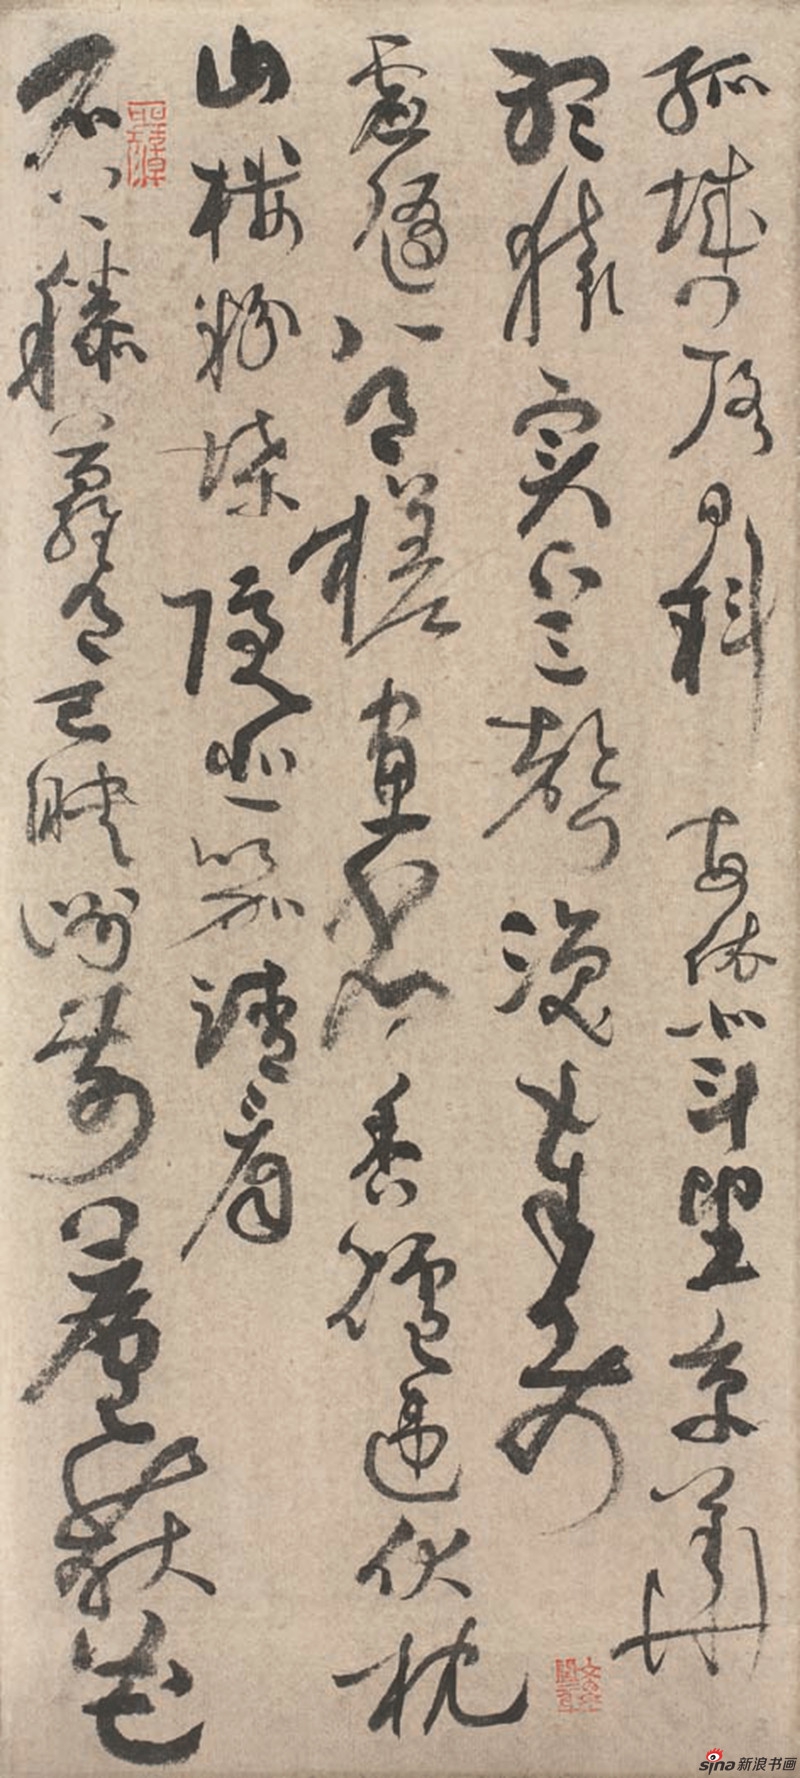 孤城落日斜每依北斗望京華
聽猿實下三聲淚奉使
虛隨八月槎畫省香爐違伏枕
山樓粉堞隱悲笳請看
石上藤蘿月已映洲前蘆荻花
sina新浪书画